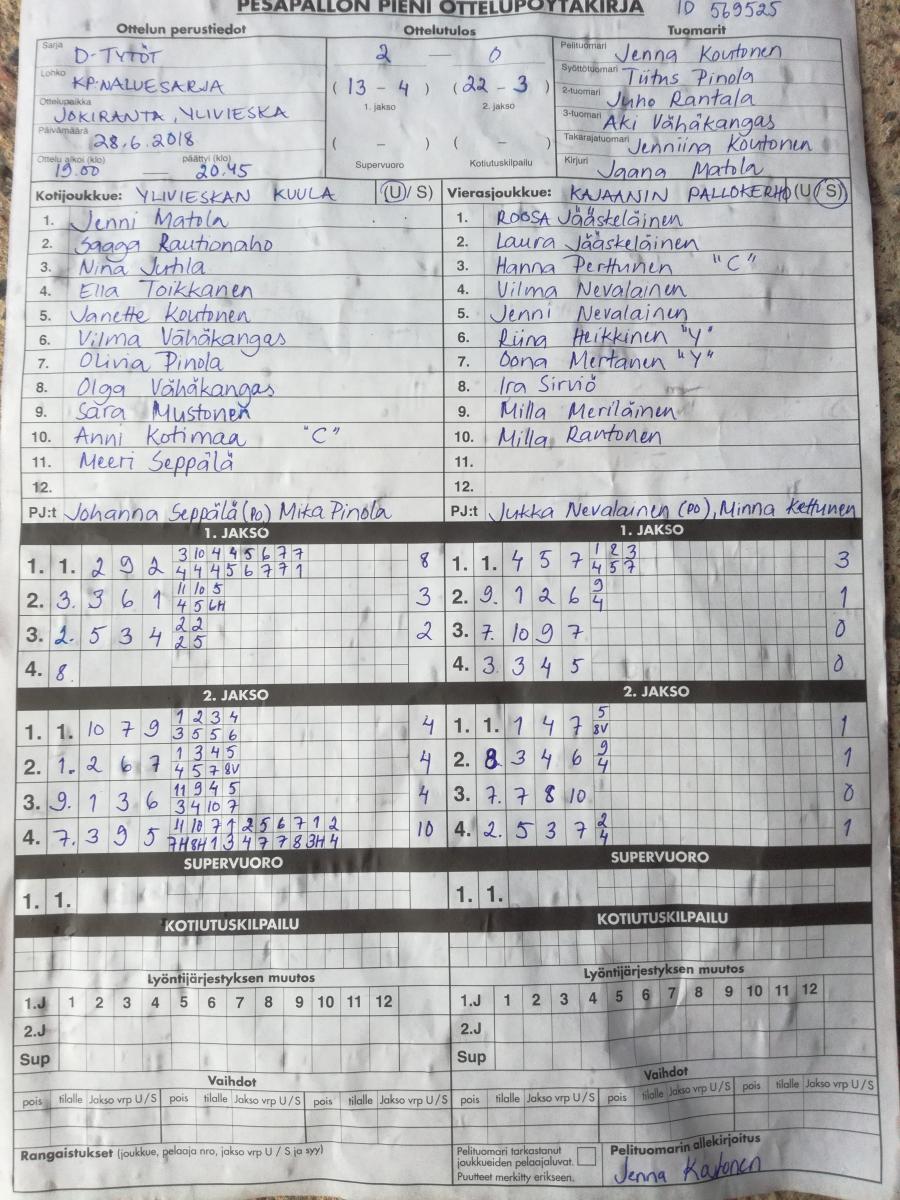 PESÄPALLON PIENI OTTELUPÖYTÄKIRJA ID 569525
Ottelun perustiedot Ottelutulos Tuomarit
Sarja D-TYTÖT
Lohko KP:N ALUESARJA
Ottelupaikka JOKIRANTA, YLIVIESKA
Päivämäärä 28.6.2018
Ottelu alkoi (klo) päättyi (klo)
19.00 — 20.45
2 — 0
( 13 - 4 ) ( 22 - 3 )
1. jakso 2. jakso
( – ) ( – )
Supervuoro Kotiutuskilpailu
Pelituomari Jenna Koutonen
Syöttötuomari Titus Pinola
2-tuomari Juho Rantala
3-tuomari Aki Vähäkangas
Takarajatuomari Jenniina Koutonen
Kirjuri Jaana Matola
Kotijoukkue: YLIVIESKAN KUULA (U/ S)
1. Jenni Matola
2. Saaga Rautionaho
3. Nina Juhla
4. Ella Toikkanen
5. Janette Koutonen
6. Vilma Vähäkangas
7. Olivia Pinola
8. Olga Vähäkangas
9. Sara Mustonen
10. Anni Kotimaa "C"
11. Meeri Seppälä
12.
PJ:t Johanna Seppälä (PO) Mika Pinola
Vierasjoukkue: KAJAANIN PALLOKERHO (U/ S)
1. ROOSA Jääskeläinen
2. Laura Jääskeläinen
3. Hanna Perttunen "C"
4. Vilma Nevalainen
5. Jenni Nevalainen
6. Riina Heikkinen "Y"
7. Oona Mertanen "Y"
8. Ira Sirviö
9. Milla Meriläinen
10. Milla Rantonen
11.
12.
PJ:t Jukka Nevalainen (PO), Minna Kettunen
1. JAKSO
1. 1. 2 9 2 3 10 4 4 5 6 7 7 8
4 4 4 5 6 7 7 1
2. 3. 3 6 1 11 10 5 3
4 5 6H
3. 2. 5 3 4 2 2 2
2 5
4. 8.
1. JAKSO
1. 1. 4 5 7 1 2 3 3
4 5 7
2. 9. 1 2 6 9 1
4
3. 7. 10 9 7 0
4. 3. 3 4 5 0
2. JAKSO
1. 1. 10 7 9 1 2 3 4 4
3 5 5 6
2. 1. 2 6 7 1 3 4 5 4
4 5 7 8V
3. 9. 1 3 6 11 9 4 5 4
3 4 10 7
4. 7. 3 9 5 11 10 7 1 2 5 6 7 1 2 10
7H 8H 1 3 4 7 7 8 3H 4
2. JAKSO
1. 1. 1 4 7 5 1
8V
2. 8 3 4 6 9 1
4
3. 7. 7 8 10 0
4. 2. 5 3 7 2 1
4
SUPERVUORO SUPERVUORO
1. 1. 1. 1.
KOTIUTUSKILPAILU KOTIUTUSKILPAILU
Lyöntijärjestyksen muutos Lyöntijärjestyksen muutos
1.J 1 2 3 4 5 6 7 8 9 10 11 12 1.J 1 2 3 4 5 6 7 8 9 10 11 12
2.J 2.J
Sup Sup
Vaihdot Vaihdot
pois tilalle Jakso vrp U / S pois tilalle Jakso vrp U / S pois tilalle Jakso vrp U / S pois tilalle Jakso vrp U / S pois tilalle Jakso vrp U / S pois tilalle Jakso vrp U / S
Rangaistukset (joukkue, pelaaja nro, jakso vrp U / S ja syy)
Pelituomari tarkastanut
joukkueiden pelaajaluvat.
Puutteet merkitty erikseen.
Pelituomarin allekirjoitus
Jenna Koutonen